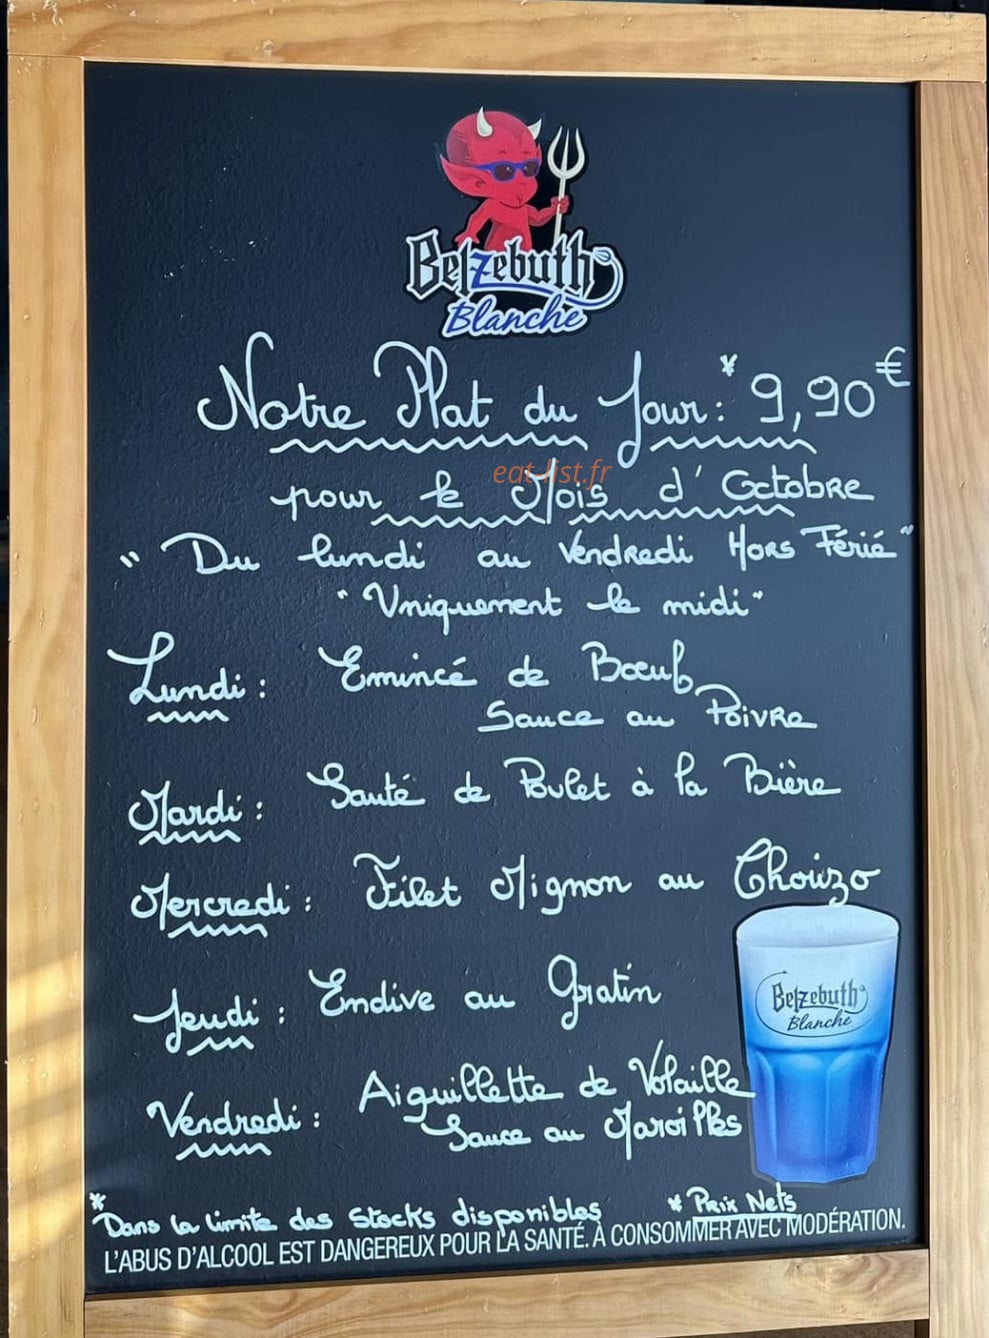 Belzebuth
Blanche
Notre Plat du Jour : * 9,90€
eat-list.fr
pour le Mois d'Octobre
" Du lundi au Vendredi Hors Férié "
" Uniquement le midi "
Lundi : Emincé de Bœuf
Sauce au Poivre
Mardi : Sauté de Poulet à la Bière
Mercredi : Filet Mignon au Chorizo
Belzebuth
Blanche
Jeudi : Endive au Gratin
Vendredi : Aiguillette de Volaille
Sauce au Maroilles
* Dans la limite des Stocks disponibles * Prix Nets
L'ABUS D'ALCOOL EST DANGEREUX POUR LA SANTÉ. À CONSOMMER AVEC MODÉRATION.